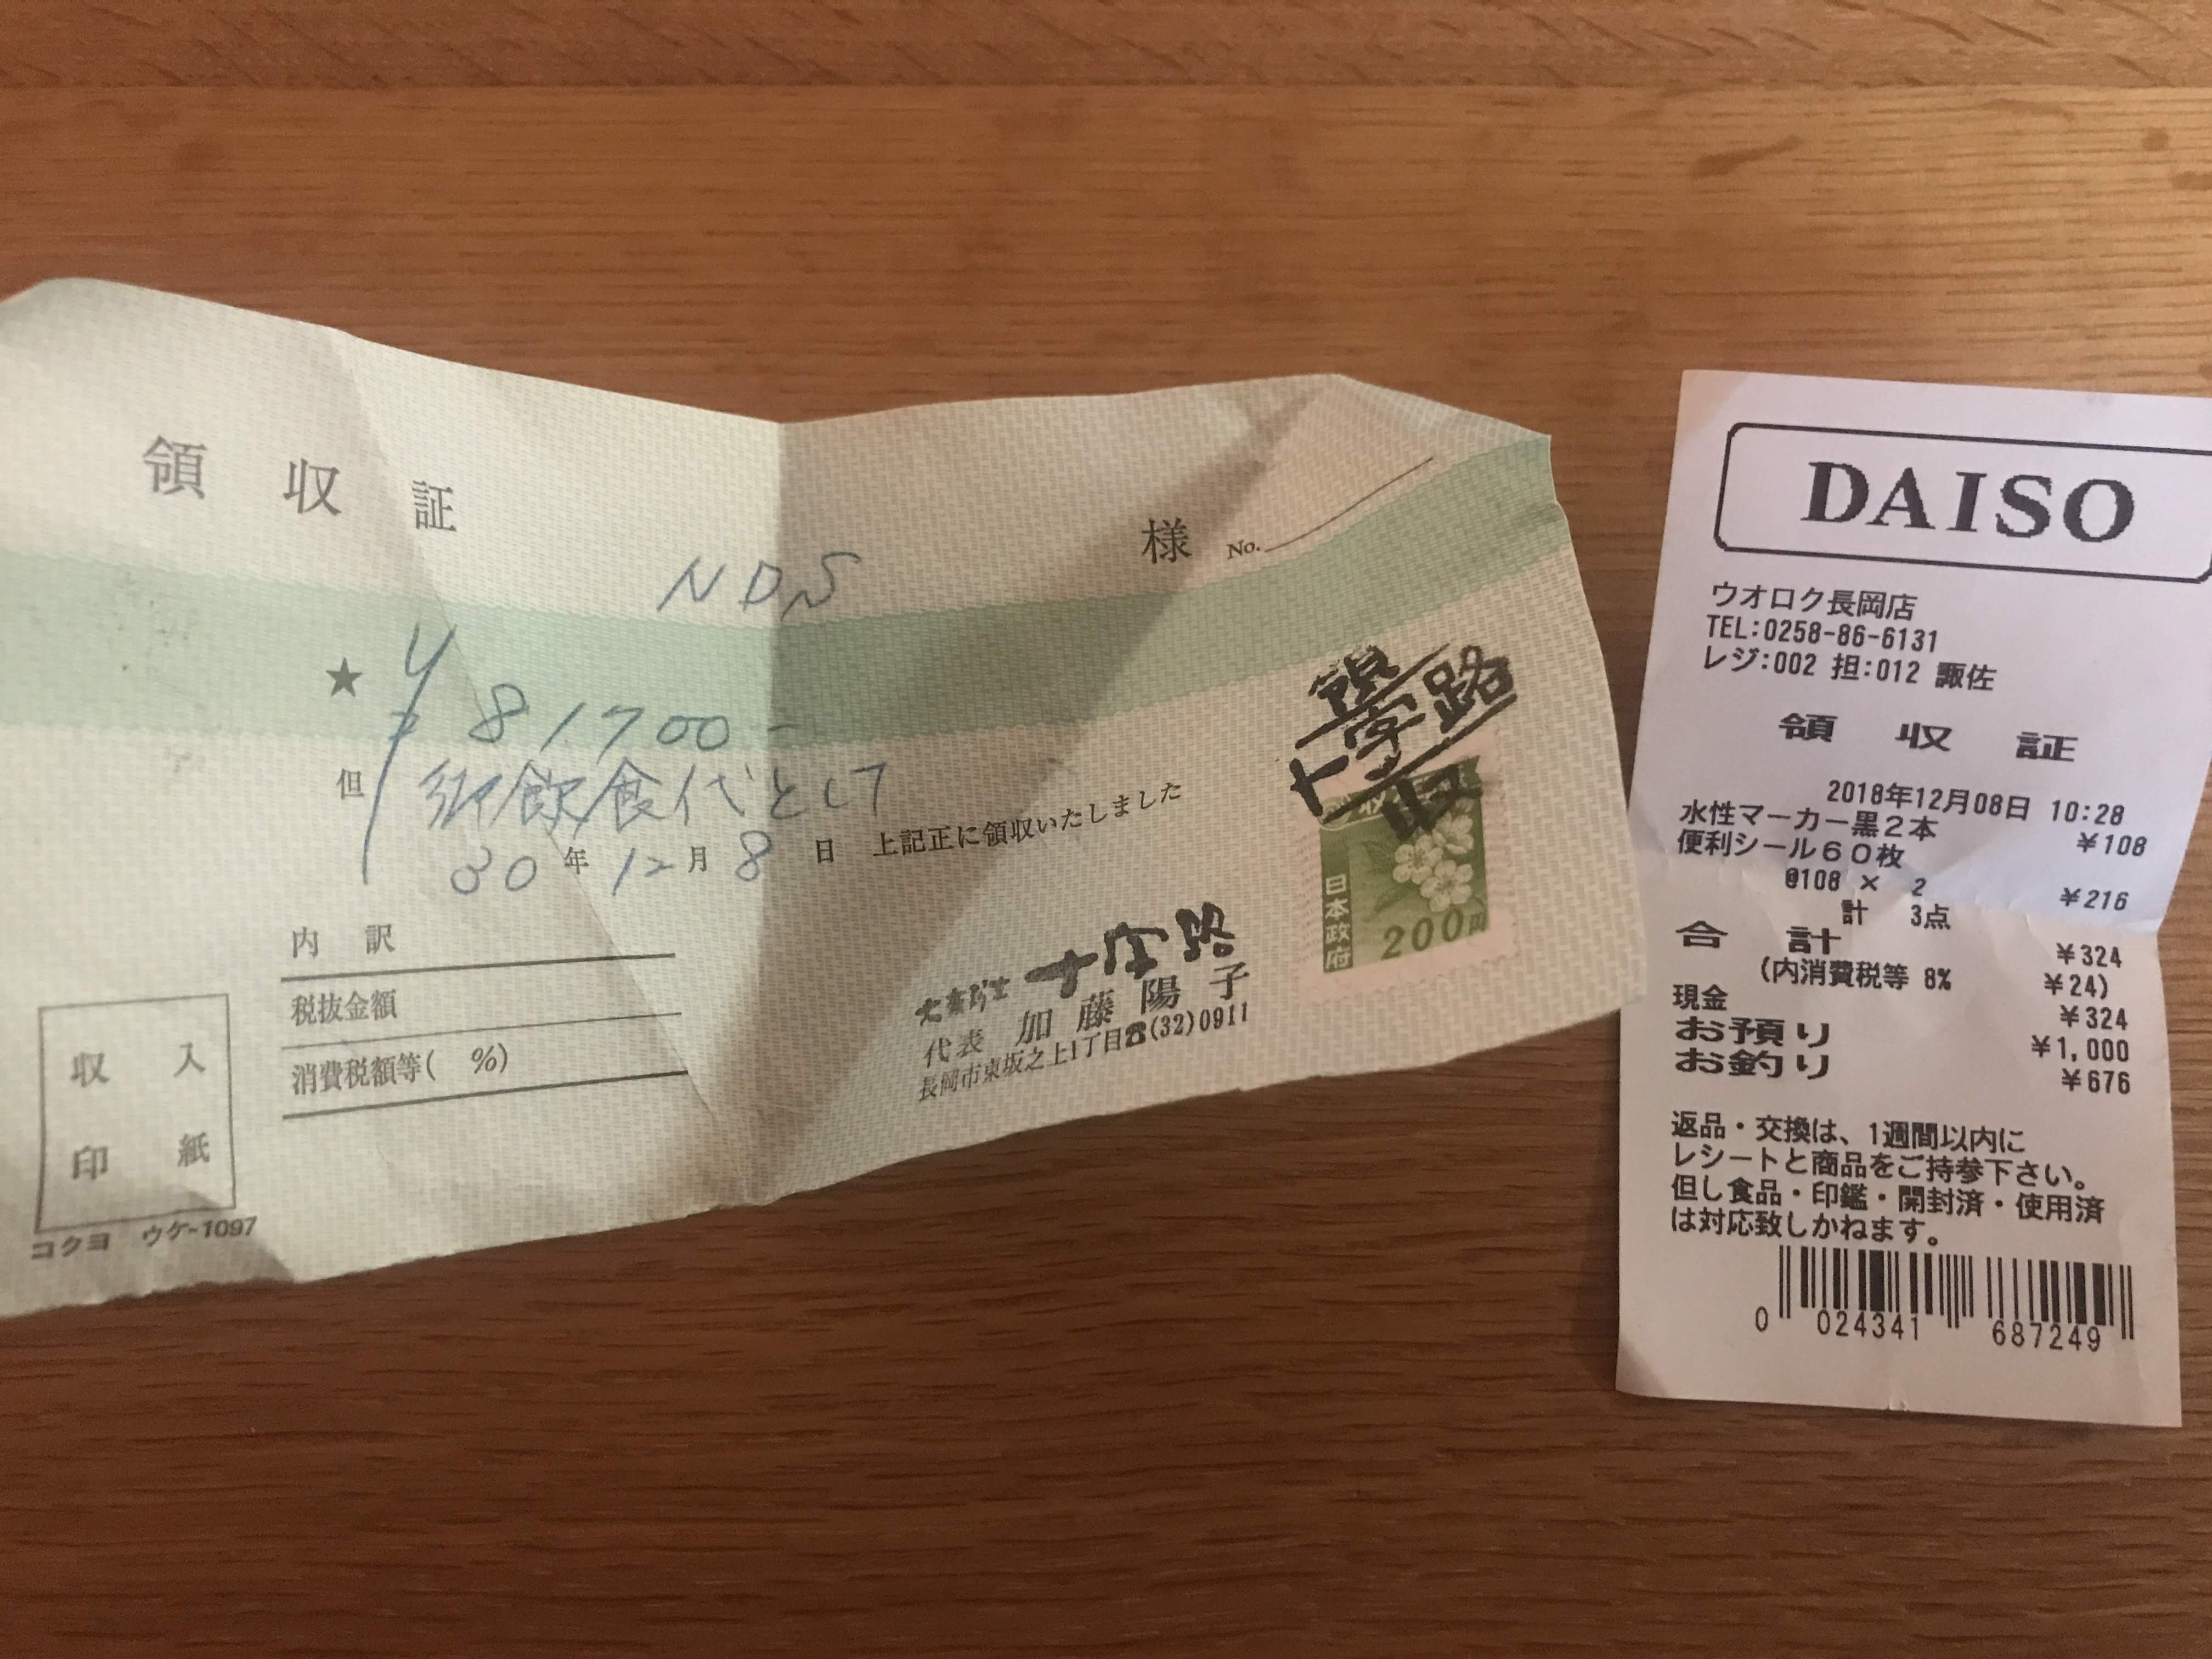 領収証
NDS 様 No.
★ ¥81700-
但 御飲食代として
30年12月8日 上記正に領収いたしました
内訳
税抜金額
消費税額等( %)
収入
印紙
コクヨ ウケ-1097
十字路
代表 加藤陽子
長岡市東坂之上1丁目☎(32)0911
十字路
日本政府
200円
DAISO
ウオロク長岡店
TEL:0258-86-6131
レジ:002 担:012 諏佐
領収証
2018年12月08日 10:28
水性マーカー黒2本 ¥108
便利シール60枚
@108 × 2 ¥216
計 3点
合計 ¥324
(内消費税等 8% ¥24)
現金 ¥324
お預り ¥1,000
お釣り ¥676
返品・交換は、1週間以内に
レシートと商品をご持参下さい。
但し食品・印鑑・開封済・使用済
は対応致しかねます。
0 024341 687249